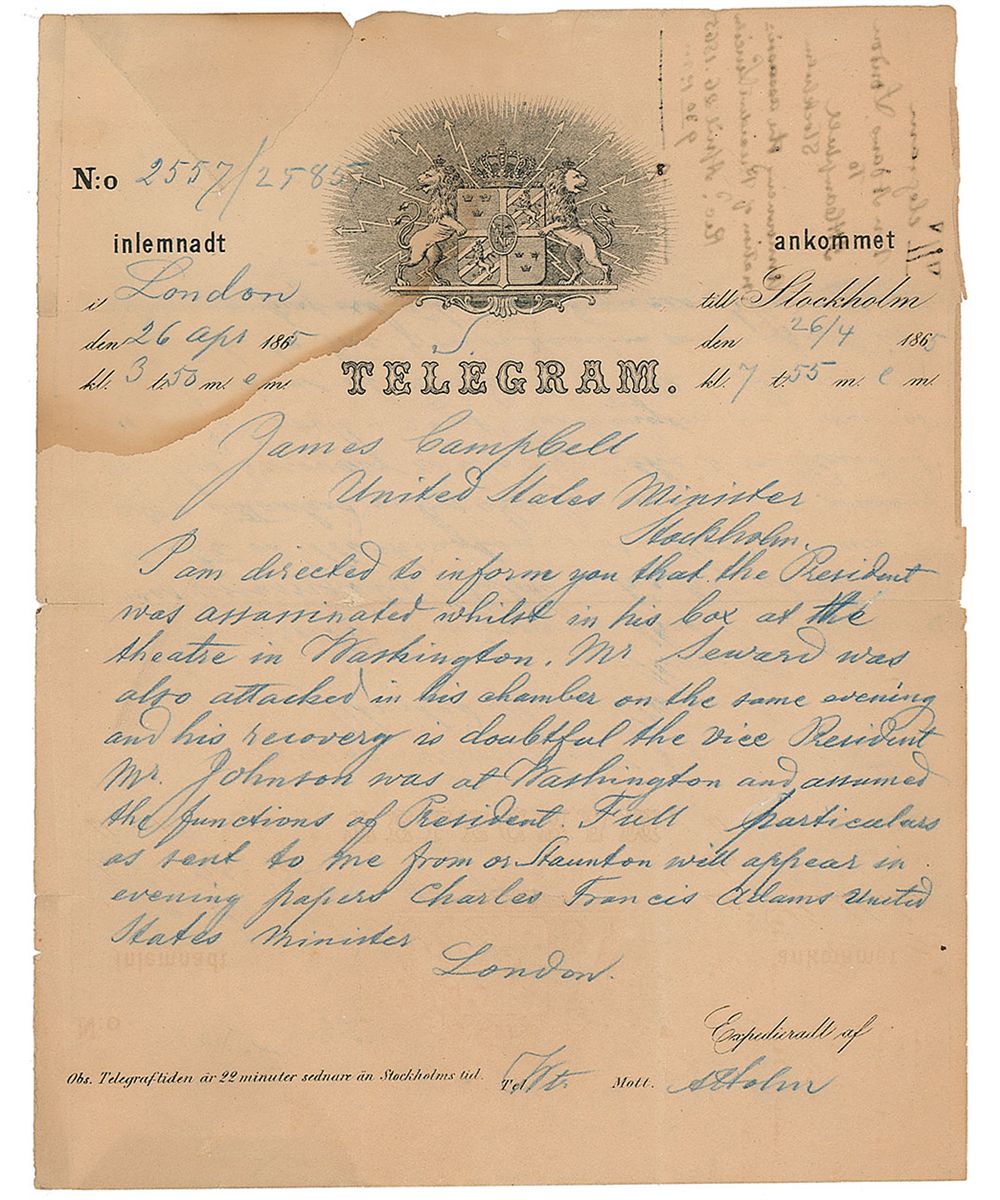 N:o 2557/2585
inlemnadt
ankommet
i London
till Stockholm
den 26 apr 1865
den 26/4 1865
kl. 3 t. 50 m. e m.
TELEGRAM.
kl. 7 t. 55 m. e m.
James Campbell
United States Minister
Stockholm.
I am directed to inform you that the President
was assassinated whilst in his box at the
theatre in Washington. Mr Seward was
also attacked in his chamber on the same evening
and his recovery is doubtful the vice President
Mr. Johnson was at Washington and assumed
the functions of President Full particulars
as sent to me from or Staunton will appear in
evening papers Charles Francis Adams United
States Minister
London.
Expedieradt af
Obs. Telegraftiden är 22 minuter sednare än Stockholms tid.
Tel
Mott. Holm